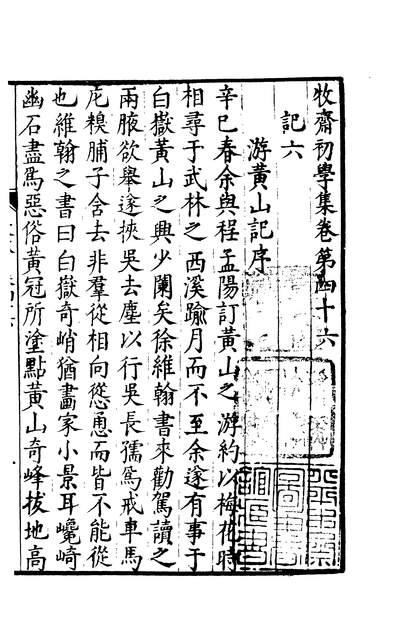 牧齋初學集卷第四十六
記六
游黃山記序
辛巳春余與程孟陽訂黃山之游約以梅花時
相尋于武林之西溪踰月而不至余遂有事于
白嶽黃山之興少闌矣徐維翰書來勸駕讀之
兩腋欲舉遂挾吳去塵以行吳長孺為戒車馬
庀糗脯子含去非羣從相向慫恿而皆不能從
也維翰之書曰白嶽奇峭猶畫家小景耳巉崎
幽石盡為惡俗黃冠所塗點黃山奇峰拔地高